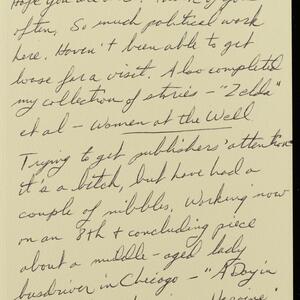 Hope you are
often. So much political work
here. Haven't been able to get
loose for a visit. Also completed
my collection of stories – "Zelda"
et al – Women at the Well
Trying to get publishers' attention
it's a bitch, but have had a
couple of nibbles. Working now
on an 8th & concluding piece
about a middle-aged lady
busdriver in Chicago – "A Day in